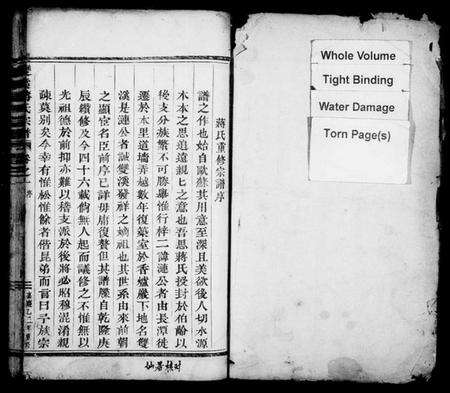 蔣氏重修宗譜序
譜之作也始自歐蘇其用意至深且美欲後人切水源
木本之思追遠親親之意也吾思蔣氏授封於伯齡以
後支分族繁不可勝舉惟行梓二諱漣公者由長潭徙
遷於本里道墻弄越數年復築室於香爐巖下地名雙
漢是漣公者誠雙漢發祥之嫡祖也其世系由來前朝
之顯宦名臣前序已詳毋庸復贅但其譜牒自乾隆庚
辰續修及今四十六載倘無人起而議修之不惟無以
光祖德於前抑亦難以稽支派於後將必昭穆混淆親
疎莫別矣今幸有惟松惟餘者偕昆弟而言曰子族宗
Whole Volume
Tight Binding
Water Damage
Torn Page(s)